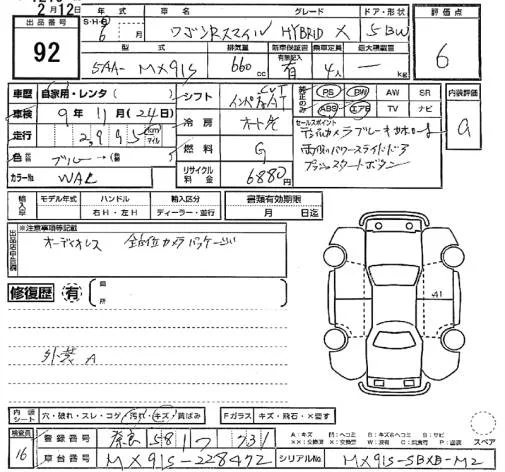 2月12日
出品番号
92
S・H・R
年 式 車 名 グレード ドア・形状
6 月 ワゴンRスマイル HYBRID X 5BW
型 式 排気量 新車保証書 乗車定員 最大積載量
5AA-MX91S 660 cc 有無記入 有 4人 — kg
評価点
6
車歴 自家用・レンタ( )
車検 9年 11月(24日)
走行 2,995 km マイル
色 ブルー →( 番)
カラーNo WAL
シフト インパネAT CVT
冷房 オートAC
燃料 G
リサイクル料金 6880円
純正のみ
PS PW AW SR
ABS エアB TV ナビ
内装評価
a
セールスポイント
両側パワースライドドア
プッシュスタートボタン
輸入車
モデル年式 ハンドル 輸入区分
右H・左H ディーラー・並行
書類有効期限
月 日迄
出品店申告欄
※注意事項等記載
オーディオレス 全方位カメラパッケージ
修復歴 有 箇所
外装 A
A1
内装 シート 穴・破れ・スレ・コゲ・汚れ・キズ・黄ばみ
Fガラス キズ・飛石・X要す
検査員
16
登録番号 奈良 581 つ 731
車台番号 MX91S-228472 シリアルNo MX91S-SBXB-M2
A:キズ M:ヘコミ
スペア